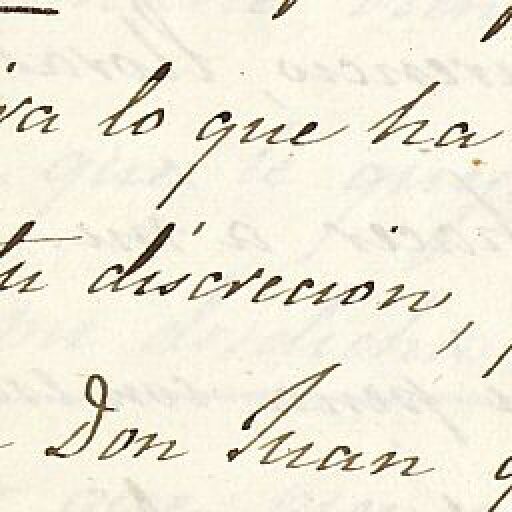 lo que ha
tu discrecion,
Don Juan